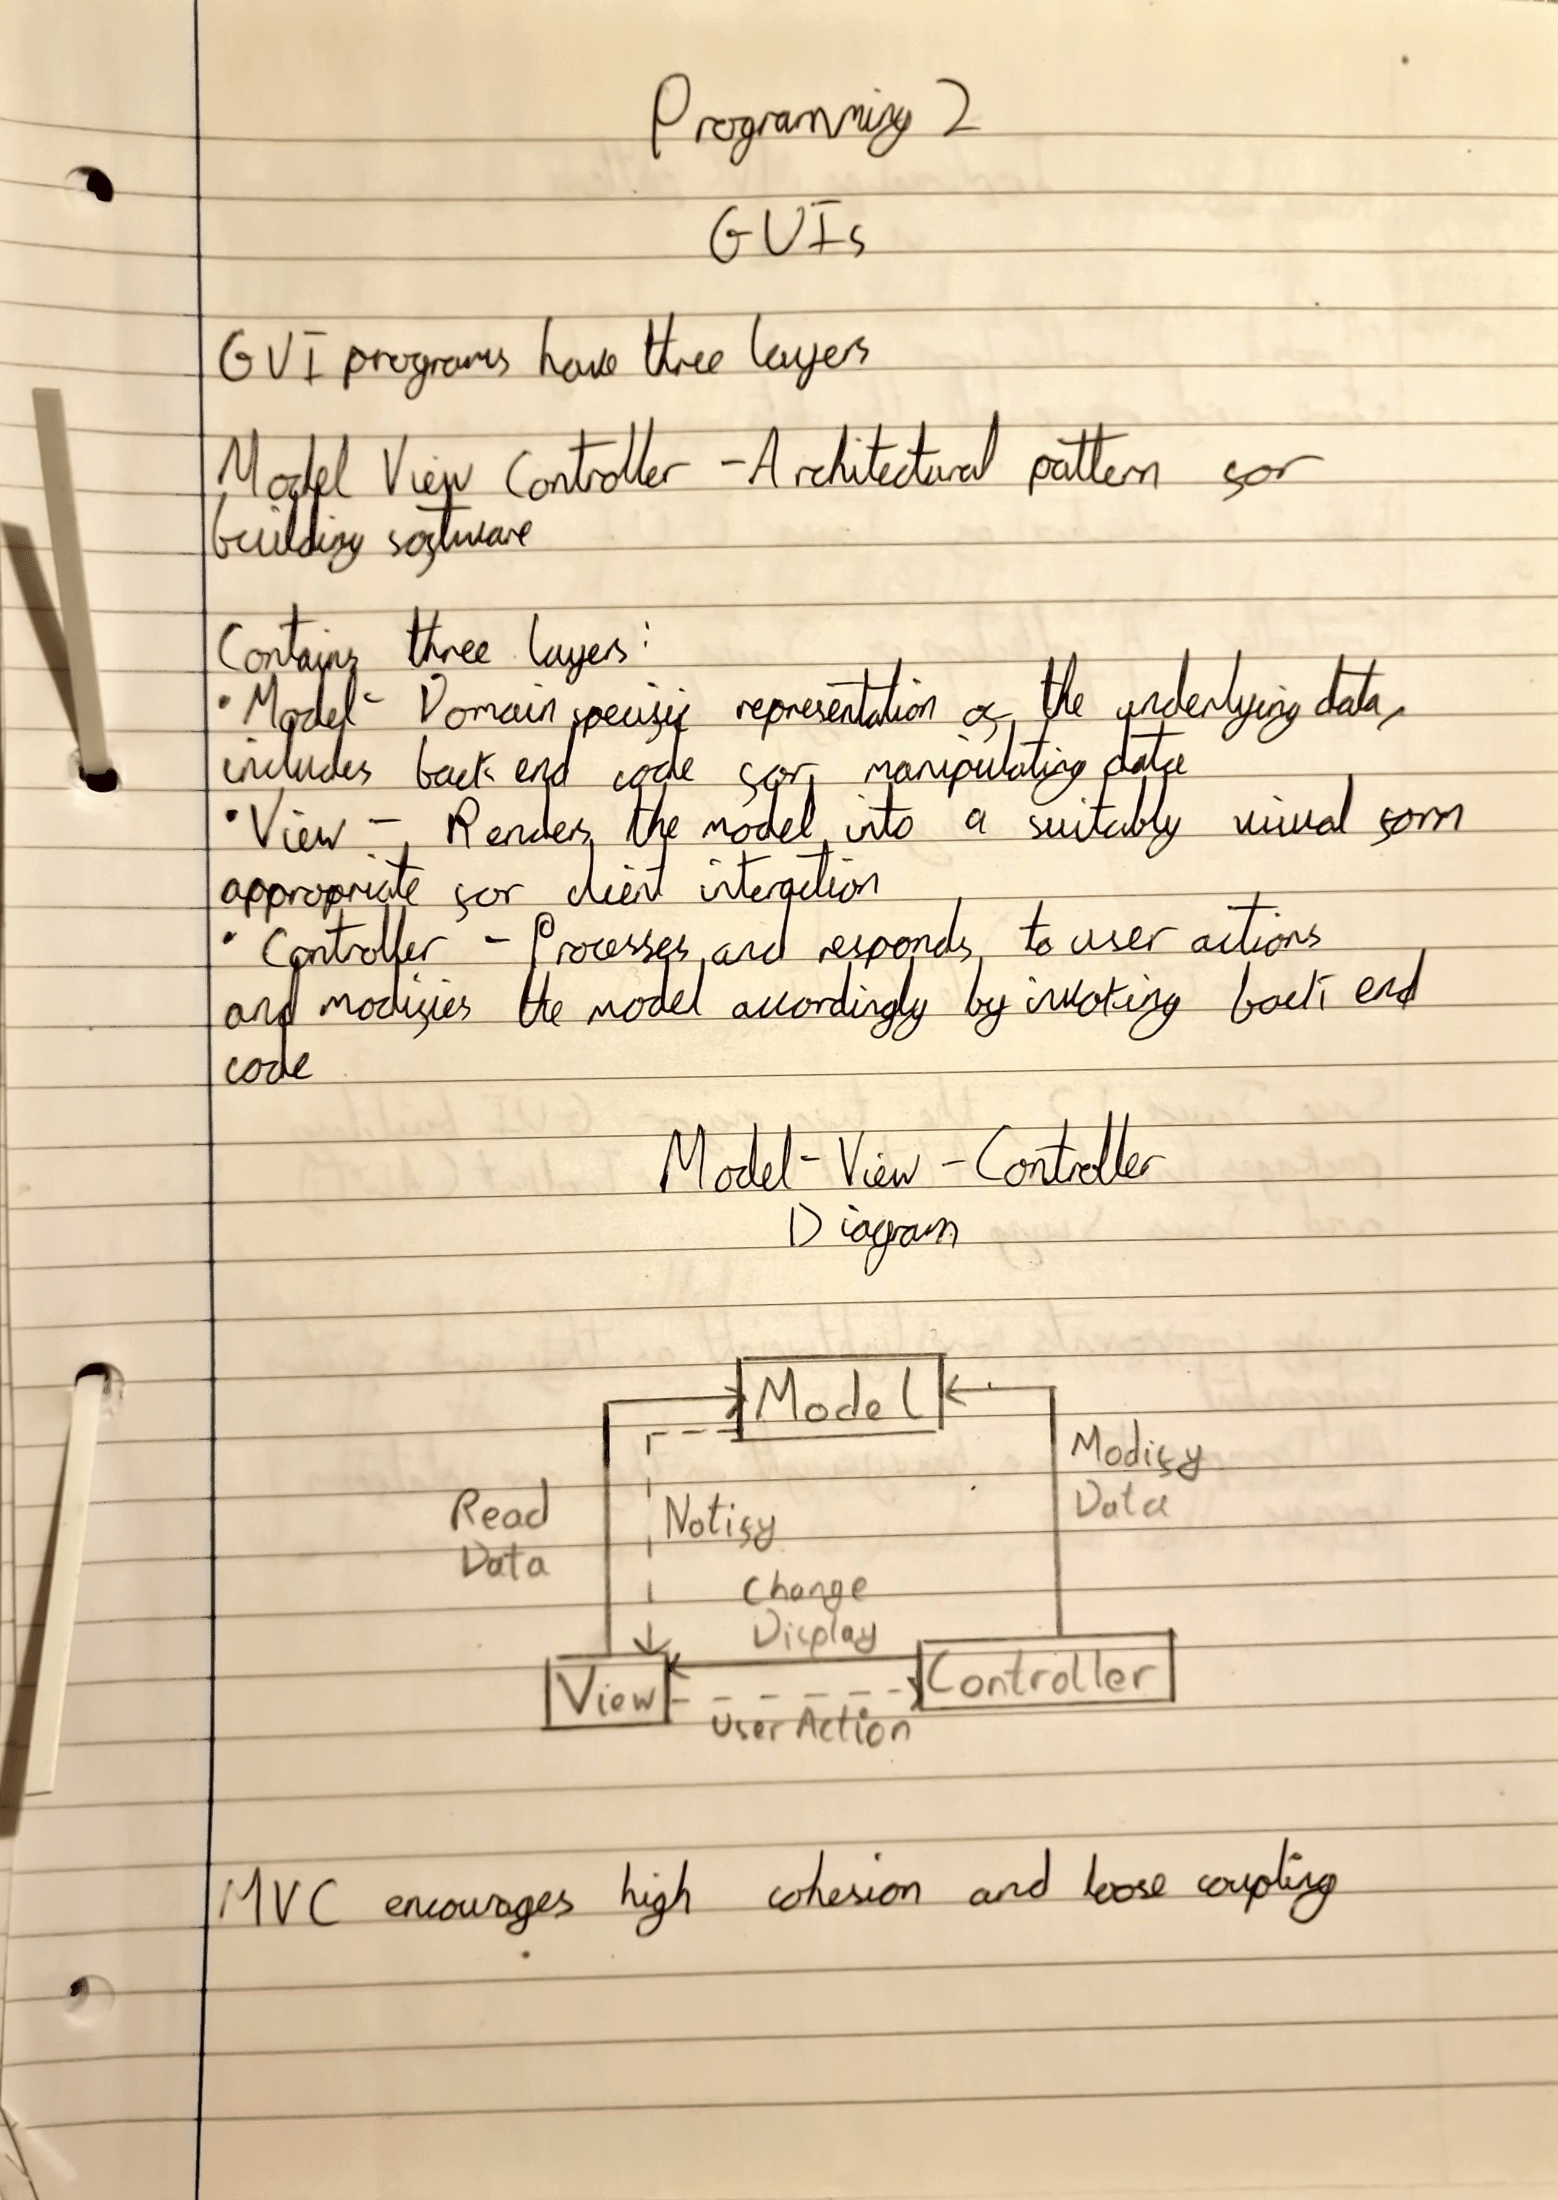 Programming 2
GUIs
GUI programs have three layers
Model View Controller - Architectural pattern for
building software
Contains three layers:
• Model - Domain specific representation of the underlying data,
includes back end code for manipulating data
• View - Renders the model into a suitably visual form
appropriate for client interaction
• Controller - Processes and responds to user actions
and modifies the model accordingly by invoking back end
code
Model-View-Controller
Diagram
Model
Modify
Data
Read
Data
Notify
Change
Display
View
Controller
User Action
MVC encourages high cohesion and loose coupling